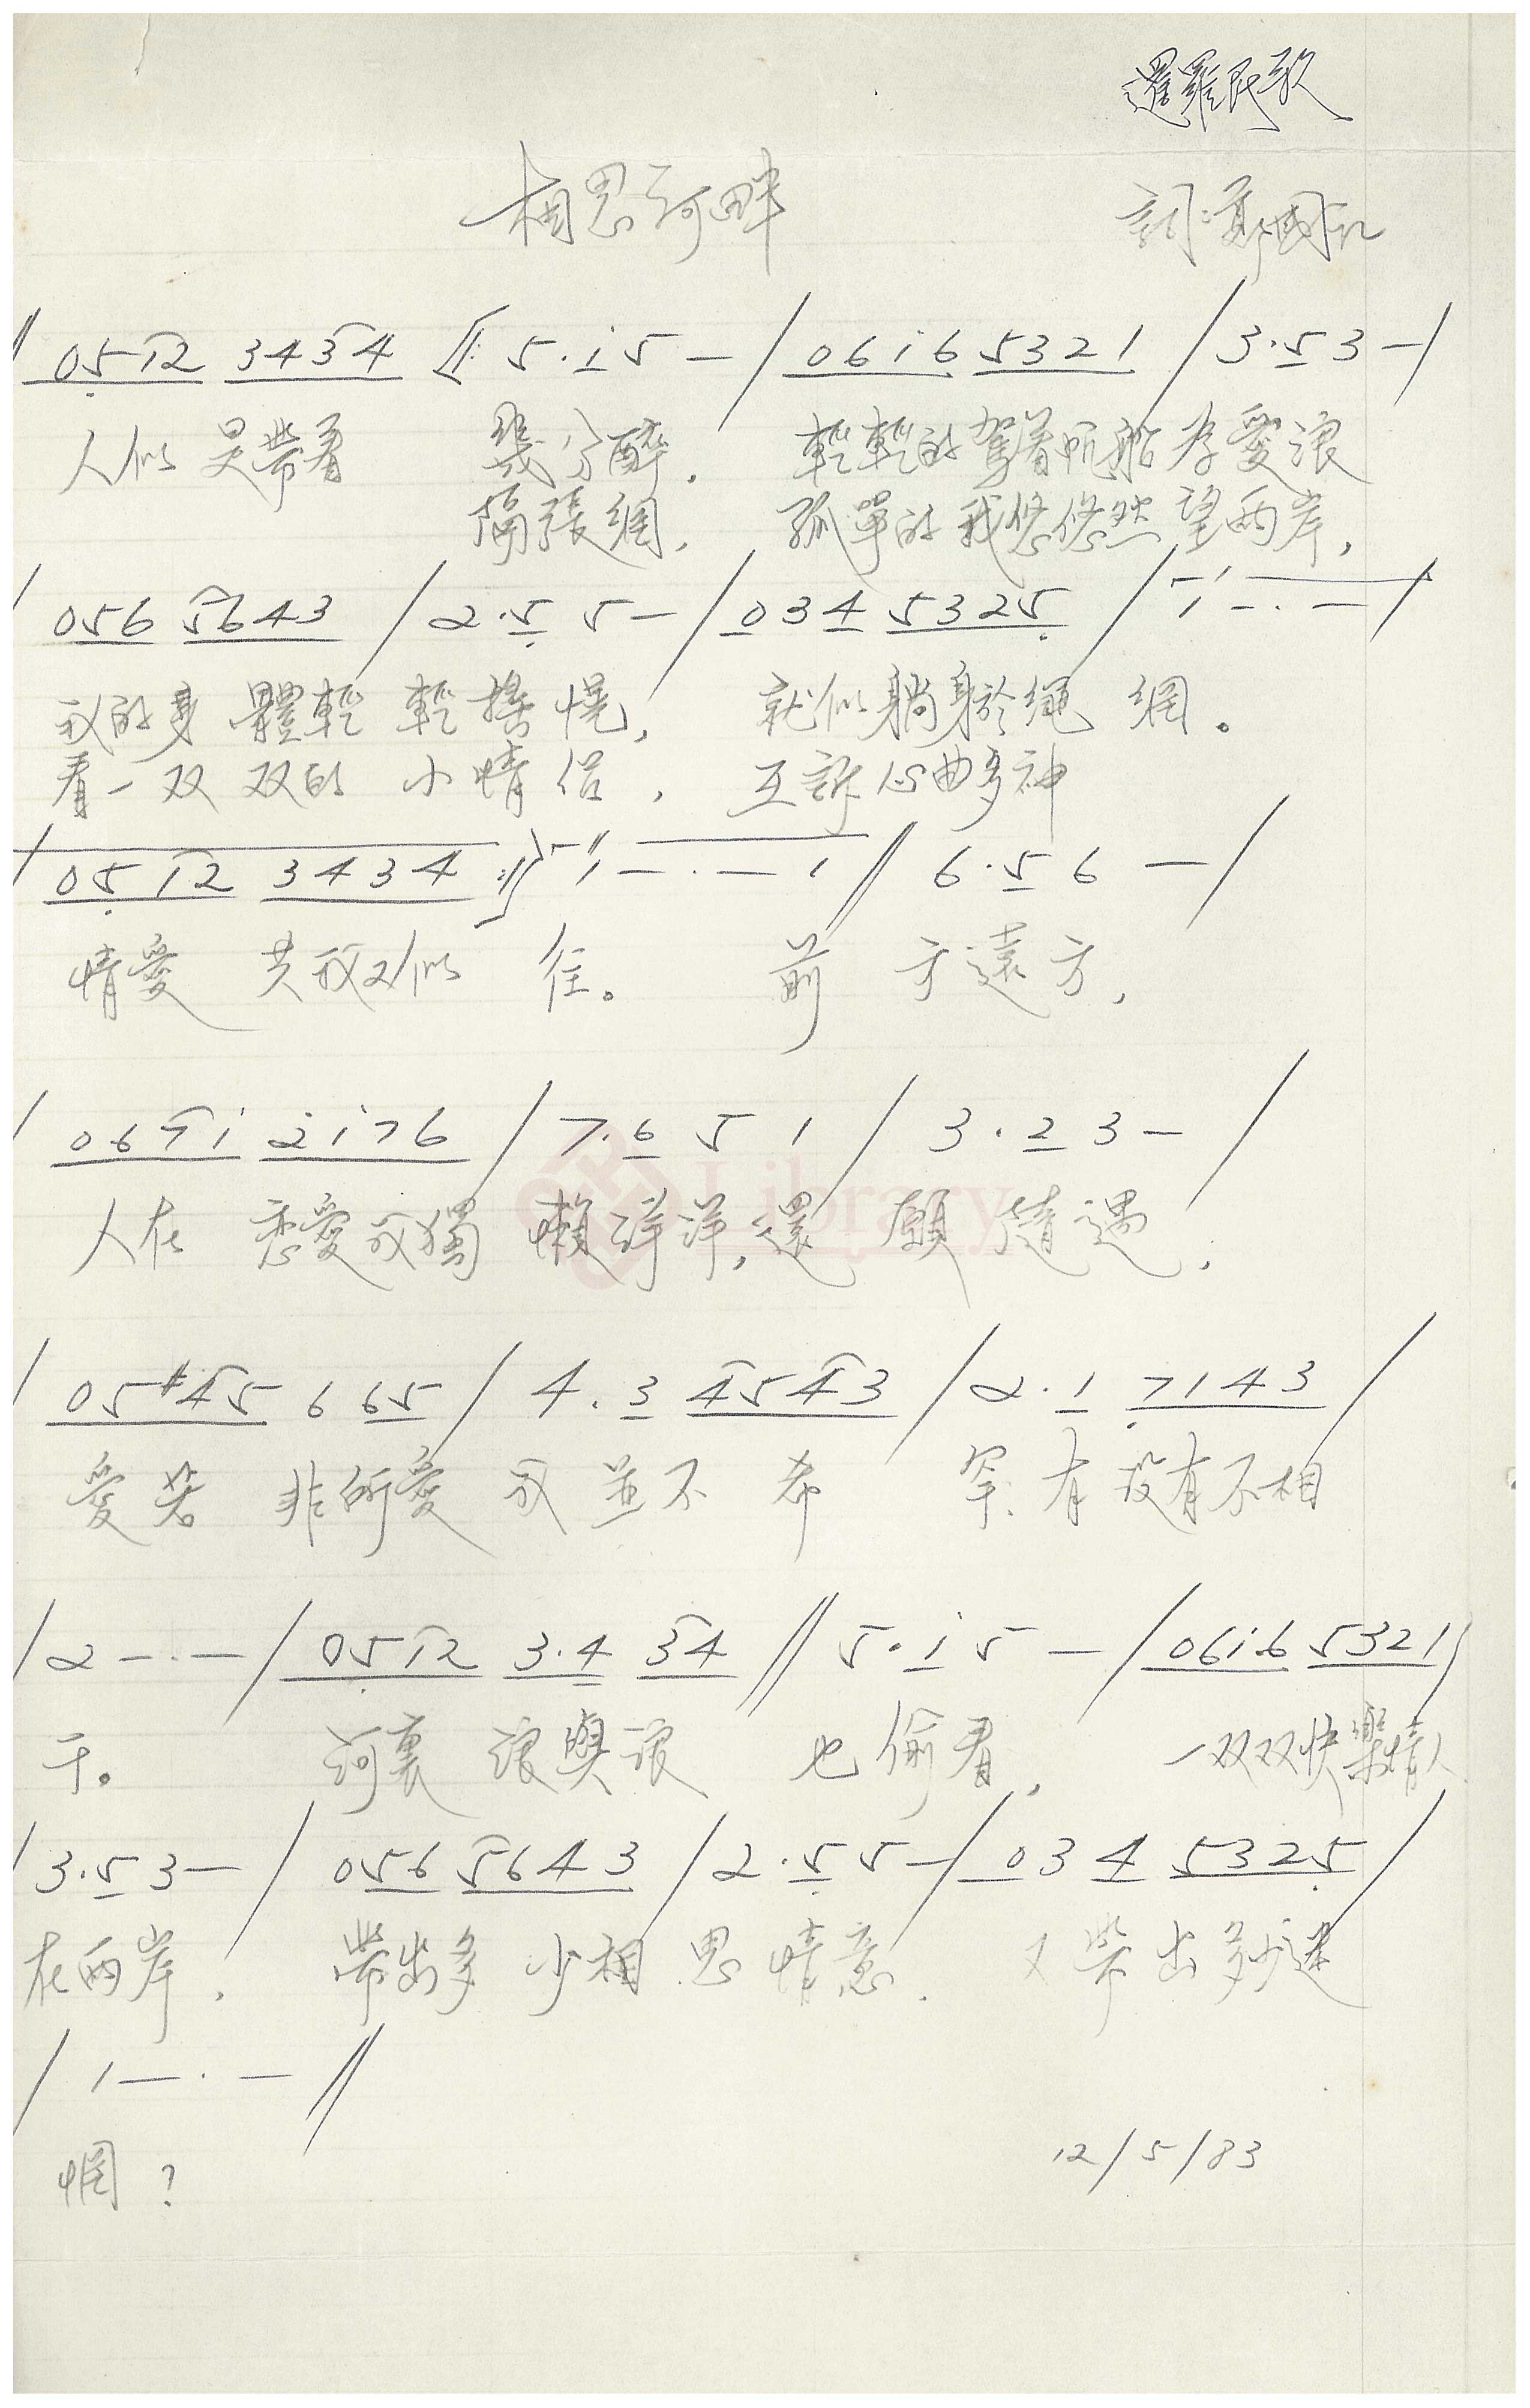 暹羅民歌
相思河畔
詞:鄭國江
‖ 0512 3434 ‖: 5·i5 — / 06i6 5321 / 3·53 — /
人似是帶着 幾分醉, 輕輕的駕着帆船為愛浪
隔張網, 孤單的我悠悠然望兩岸,
/ 056 5643 / 2·5 5 — / 034 5325 / 1 — · — /
我的身體輕輕搖幌, 就似躺身於繩網。
看一双双的小情侶, 互訴心曲多神
/ 0512 3434 :‖ 1 — · — 1 ‖ 6·5 6 — /
情愛 共我又似 往。 前 方遠方,
/ 067i 2i76 / 7·6 5 1 / 3·2 3 — /
人在 戀愛我獨 懶洋洋,還 願 隨遇,
/ 05#45 6 65 / 4·3 4543 / 2·1 7143 /
愛若 非所愛 我並不 希 罕,有沒有不相
/ 2 — · — / 0512 3·4 34 ‖ 5·i5 — / 06i6 5321 /
干。 河裏 浪與浪 也偷看, 一双双快樂情人
/ 3·53 — / 056 5643 / 2·55 — / 034 5325 /
在兩岸, 帶出多少相思情意, 又帶出多少迷
/ 1 — · — ‖
惘?
12/5/83
Library